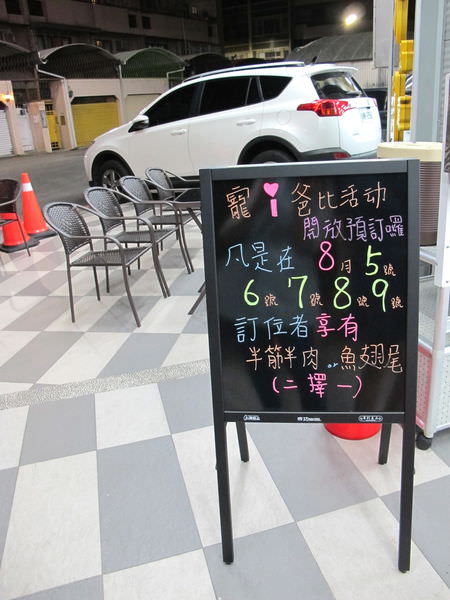 寵i爸比活动
開放預訂囉
凡是在 8月5號
6號 7號 8號 9號
訂位者享有
半筋半肉 or 魚翅尾
(二擇一)